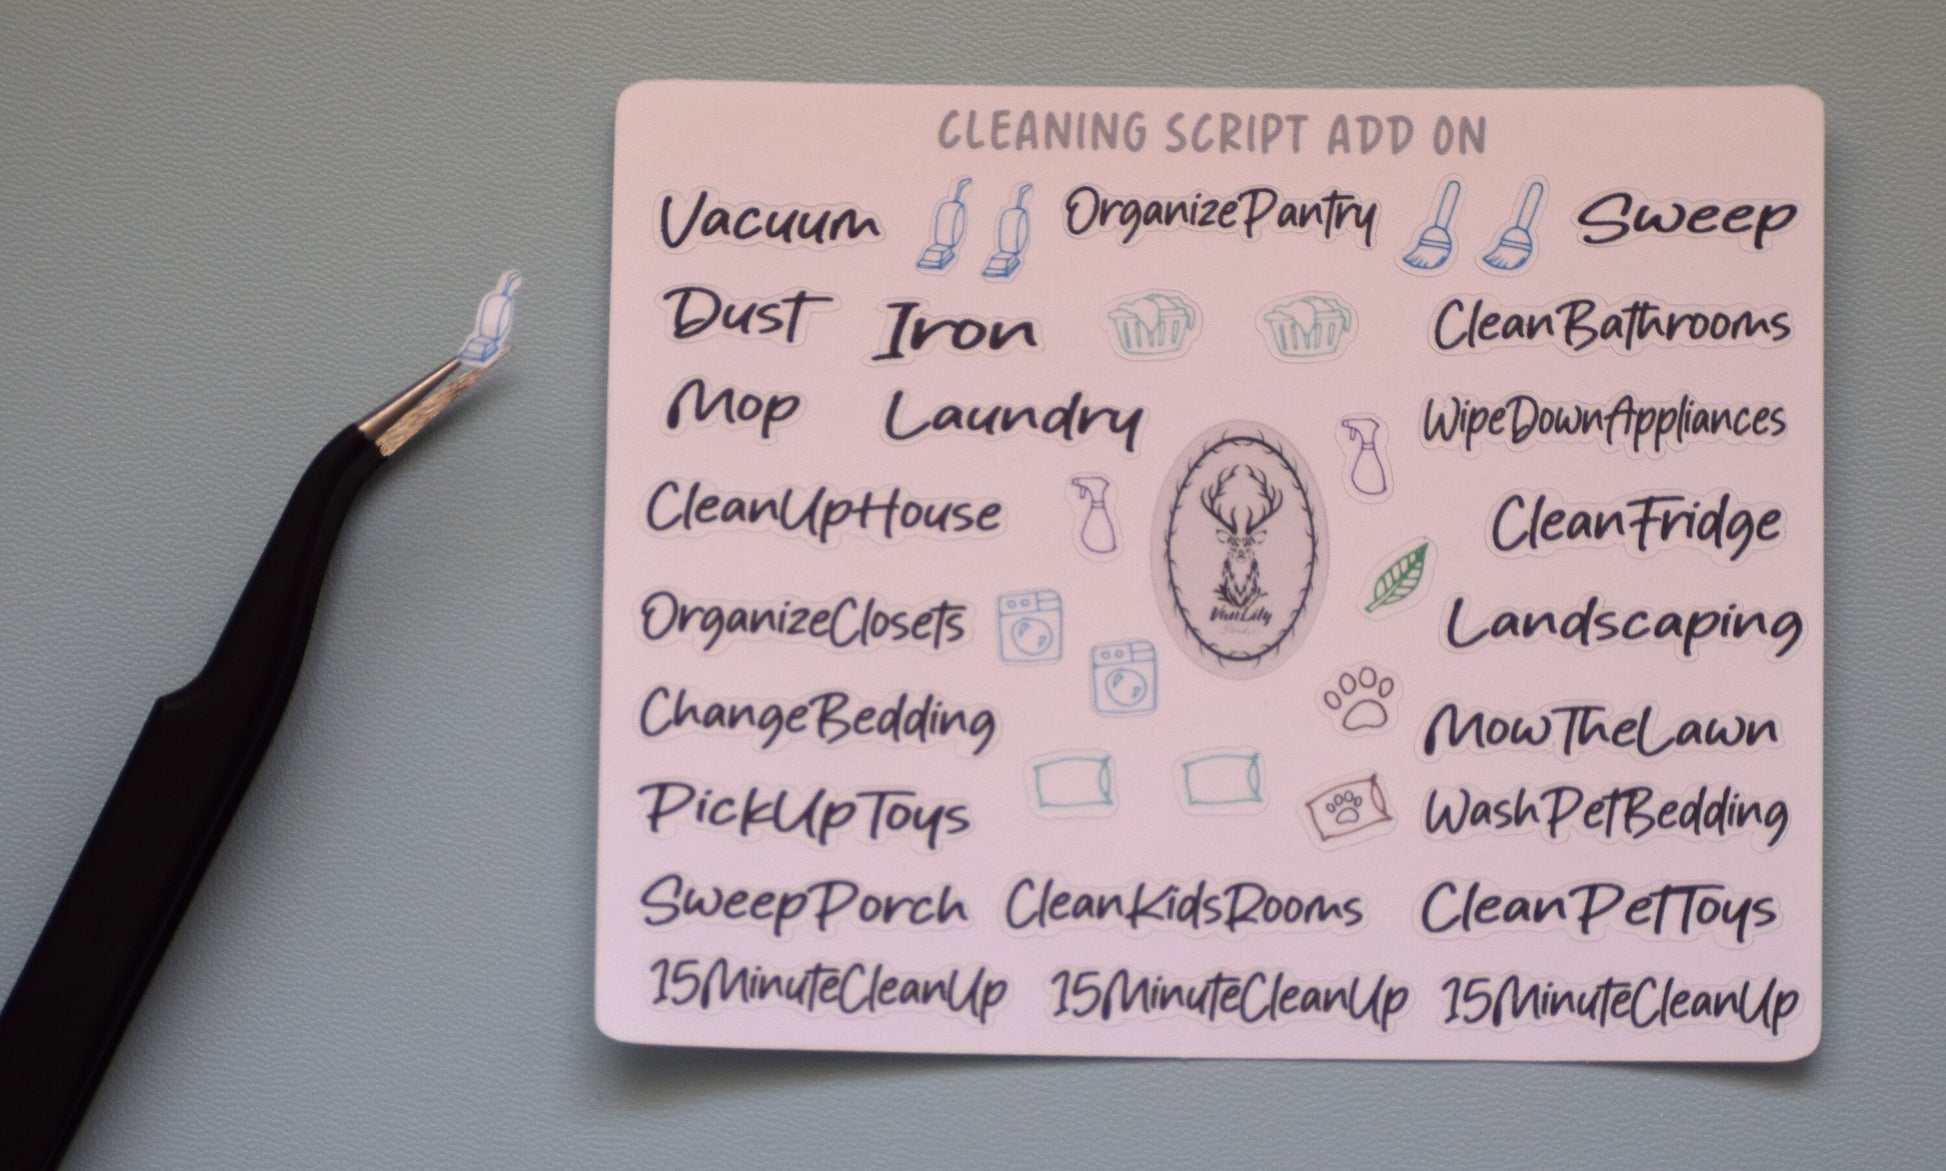 CLEANING SCRIPT ADD ON
Vacuum OrganizePantry Sweep
Dust Iron CleanBathrooms
Mop Laundry WipeDownAppliances
CleanUpHouse CleanFridge
VanLily
OrganizeClosets Landscaping
ChangeBedding MowTheLawn
PickUpToys WashPetBedding
SweepPorch CleanKidsRooms CleanPetToys
15MinuteCleanUp 15MinuteCleanUp 15MinuteCleanUp